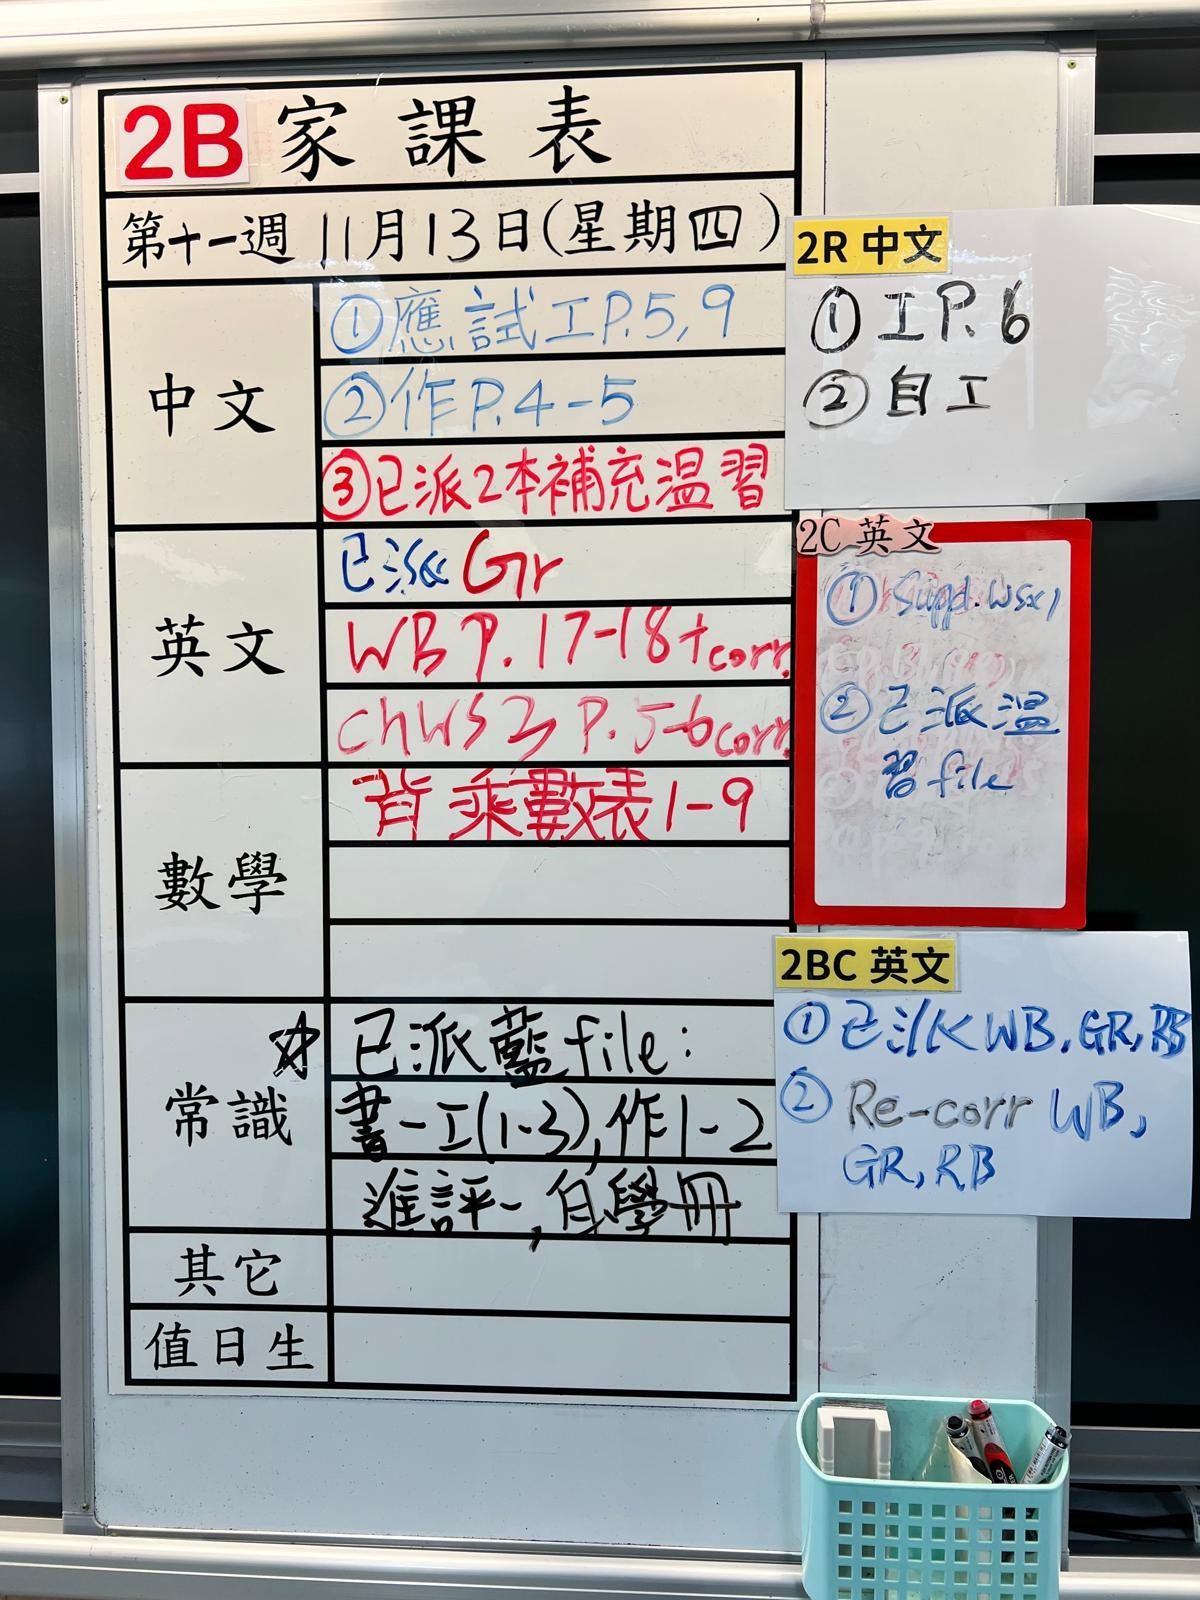 2B 家課表
第十一週 11月13日(星期四)
中文
①應試工P.5,9
②作P.4-5
③已派2本補充溫習
英文
已派 Gr
WB P.17-18+corr.
ChWS 3 P.5-6 corr.
數學
背乘數表1-9
常識
☆已派藍file:
書一工(1-3),作1-2
進評一,自學冊
其它
值日生
2R 中文
①工P.6
②自工
2C 英文
①Suppl.WSx1
②已派溫
習file
2BC 英文
①已派WB.GR,RB
②Re-corr WB,
GR,RB